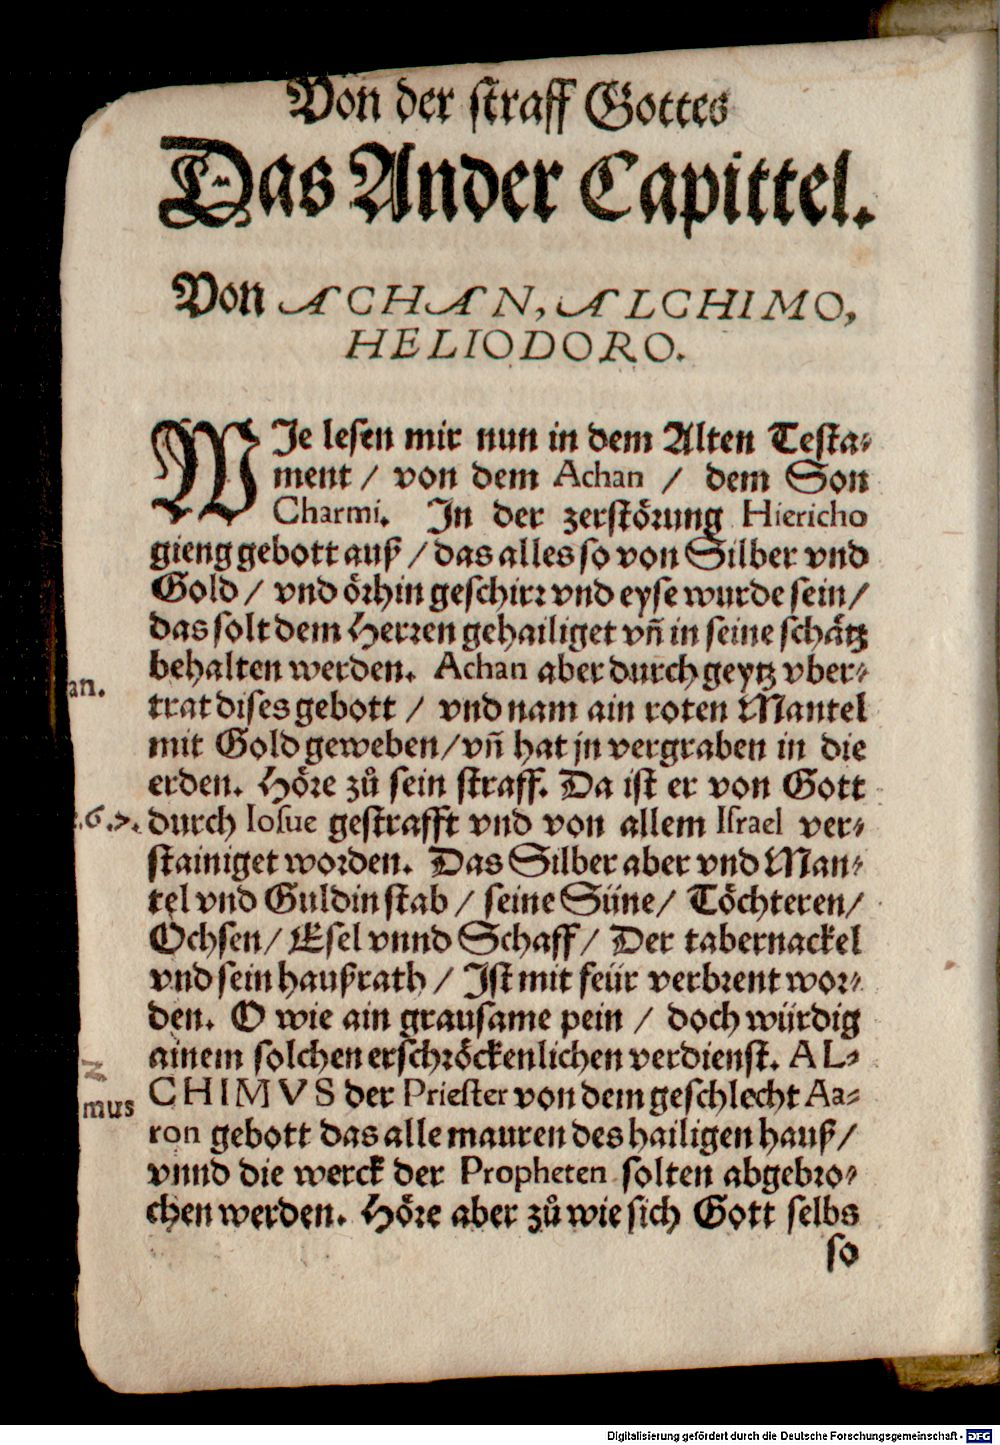 Von der straff Gottes
Das Ander Capittel.
Von ACHAN, ALCHIMO,
HELIODORO.
WIe lesen mir nun in dem Alten Testa-
ment / von dem Achan / dem Son
Charmi. In der zerstörung Hiericho
gieng gebott auß / das alles so von Silber vnd
Gold / vnd örhin geschirr vnd eyse wurde sein /
das solt dem Herren gehailiget vñ in seine schätz
behalten werden. Achan aber durch geytz vber-
an.
trat dises gebott / vnd nam ain roten Mantel
mit Gold geweben / vñ hat jn vergraben in die
erden. Höre zů sein straff. Da ist er von Gott
.6.7.
durch Iosue gestrafft vnd von allem Israel ver-
stainiget worden. Das Silber aber vnd Man-
tel vnd Guldin stab / seine Süne / Töchteren /
Ochsen / Esel vnnd Schaff / Der tabernackel
vnd sein haußrath / Ist mit feür verbrent wor-
den. O wie ain grausame pein / doch würdig
ainem solchen erschröckenlichen verdienst. AL-
mus
CHIMVS der Priester von dem geschlecht Aa-
ron gebott das alle mauren des hailigen hauß /
vnnd die werck der Propheten solten abgebro-
chen werden. Höre aber zů wie sich Gott selbs
so
Digitalisierung gefördert durch die Deutsche Forschungsgemeinschaft - DFG